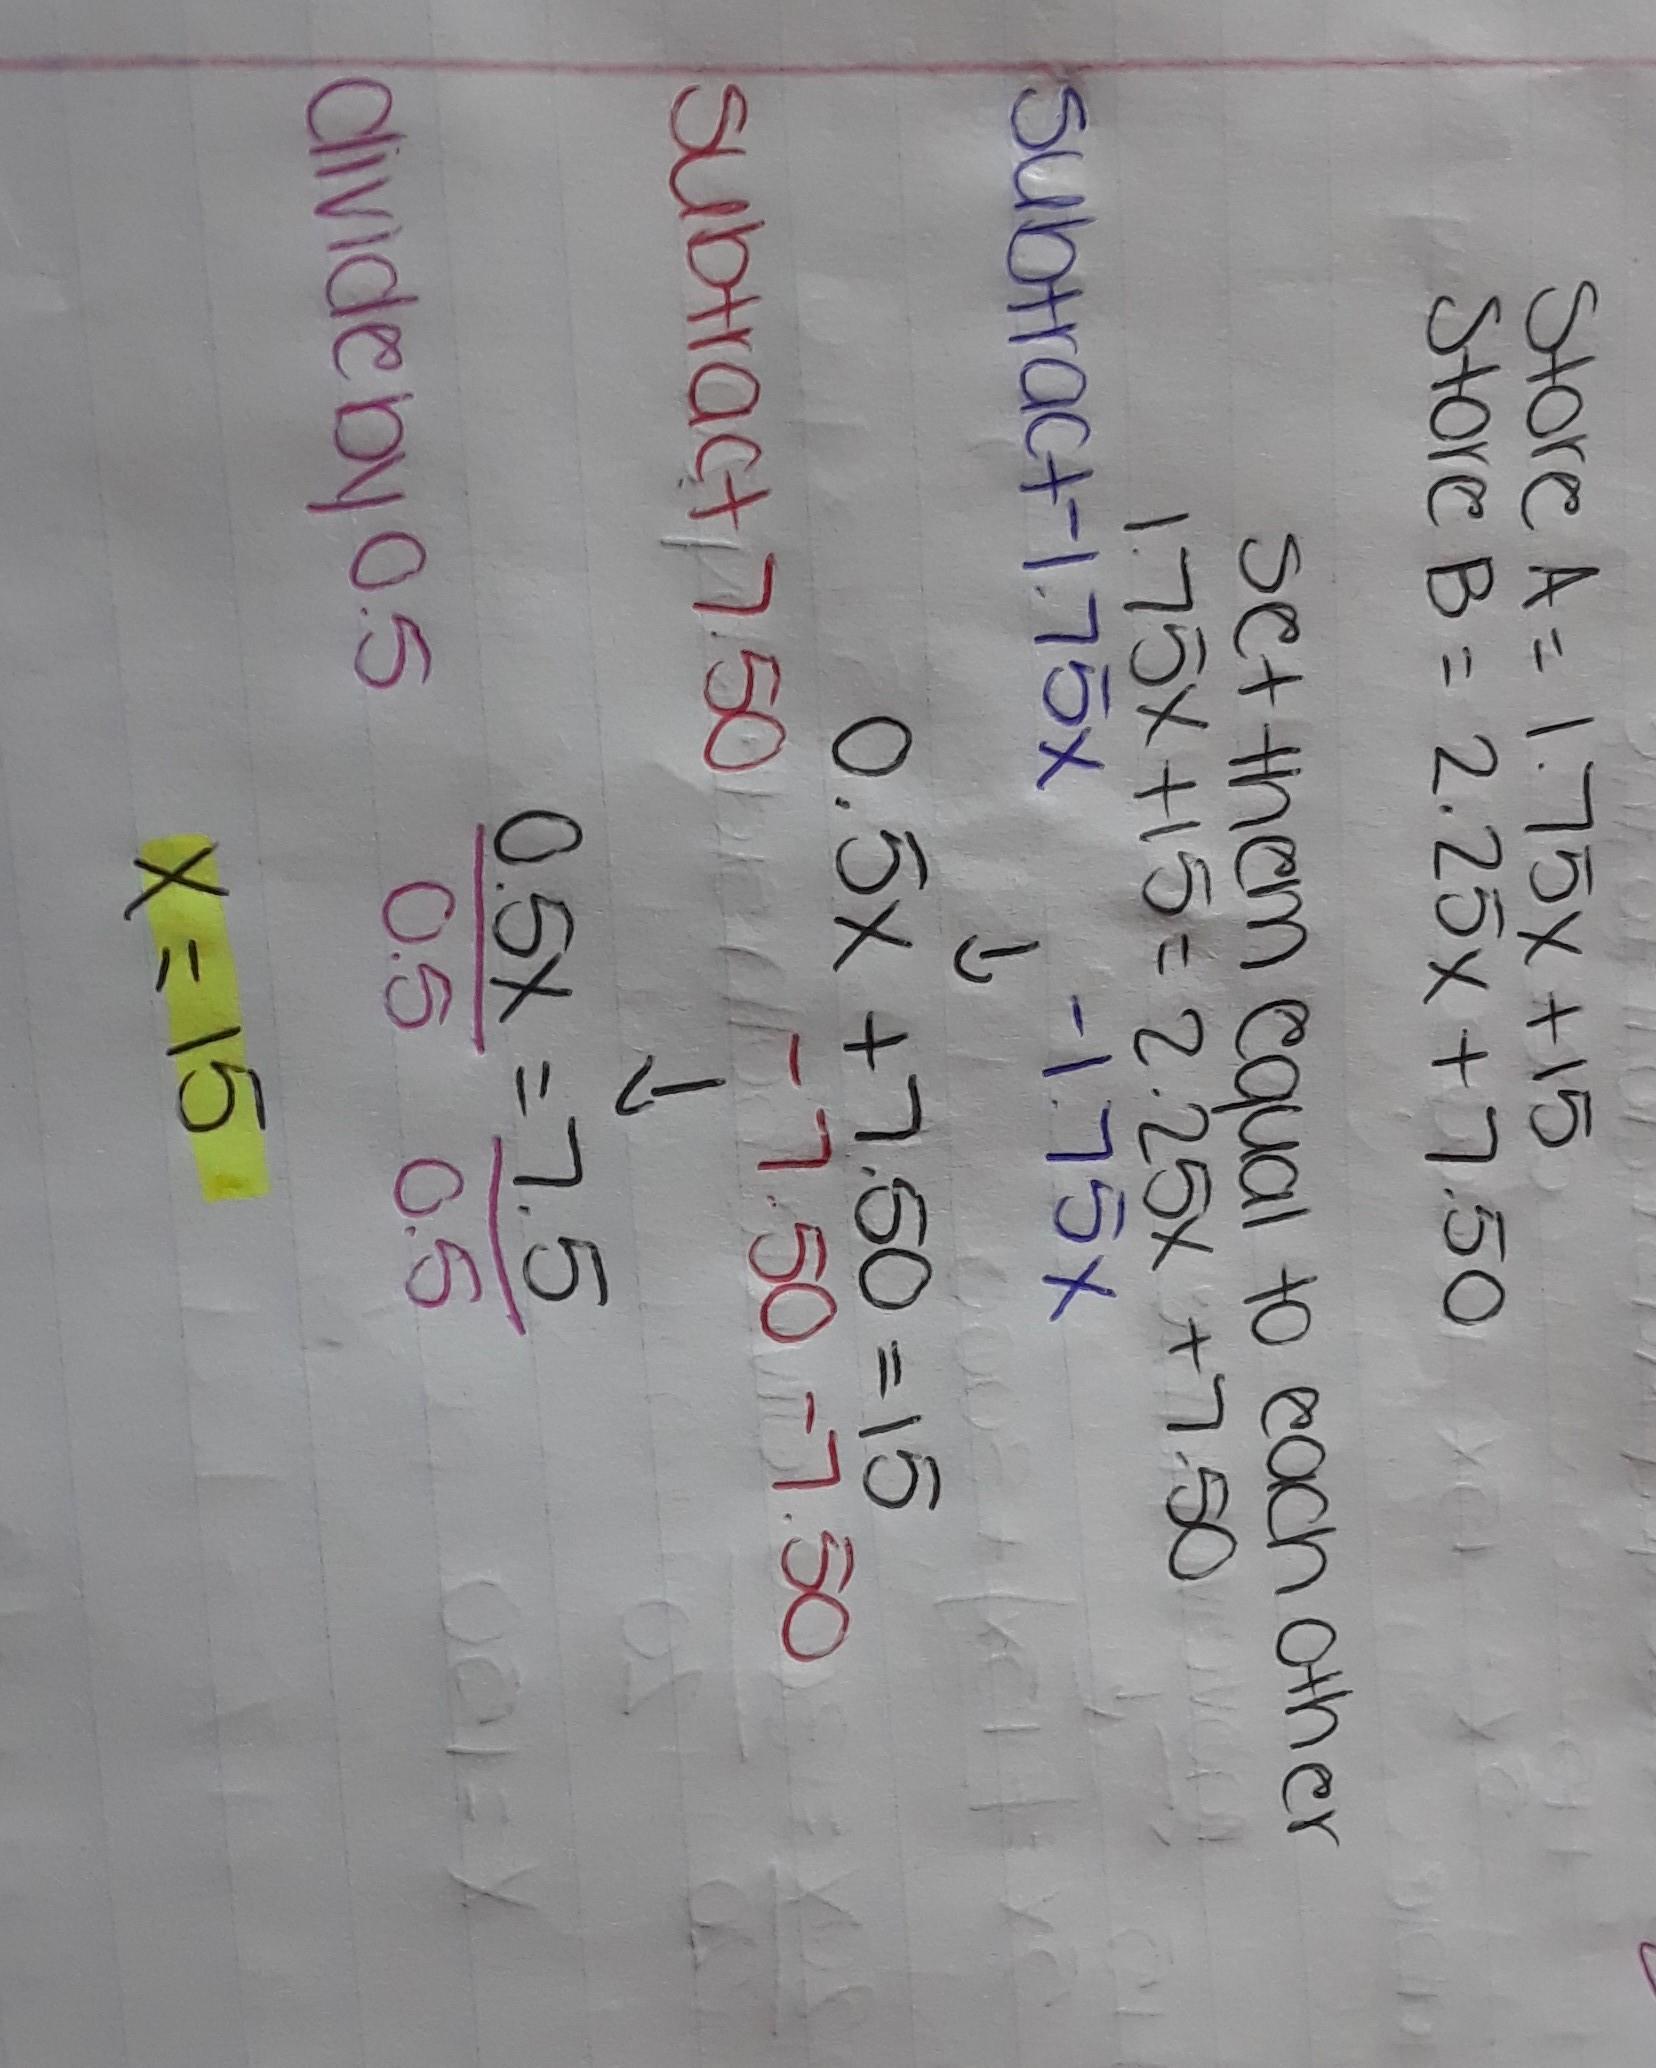 Store A = 1.75x +15
Store B = 2.25x + 7.50
Set them equal to each other
1.75x +15 = 2.25x +7.50
subtract -1.75x -1.75x
↓
0.5x + 7.50 = 15
subtract 7.50 -7.50 -7.50
↓
0.5x = 7.5
divide by 0.5 0.5 0.5
x = 15